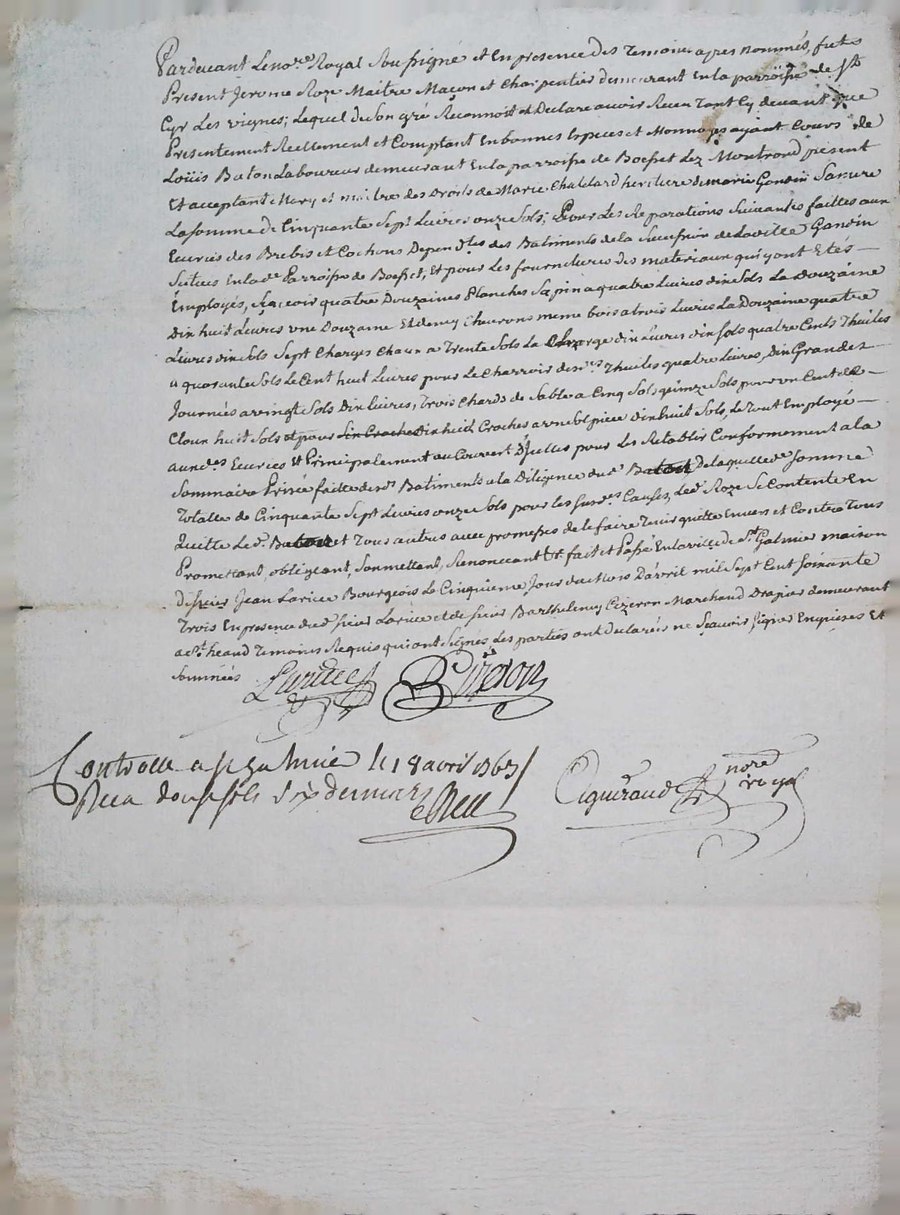 Pardevant Le no.re Royal Soussigné et En presence des Temoins apres nommés, fut
Present Jerome Roze Maitre Maçon et Charpentier demeurant En la parroisse de St
Cyr Les vignes; Lequel de Son gré Reconnoit et Declare avoir Recu Tant Cy devant que
Presentement Reellement et Comptant En bonnes Especes et Monnoyes ayant Cours de
Loüis Balon Laboureur demeurant En la parroisse de Boisset Lez Montrond present
Et acceptant Mary et maitre des Droits de Marie Challard heritiere de marie Gonon
La Somme de Cinquante Sept Livres onze Sols; Pour Les Reparations Suivantes faittes aux
Ecuries des Brebis et Cochons Depend.tes des Batiments de la Succession de
Situés En la d.e Parroisse de Boisset, Et pour Les fournitures des materiaux qui y ont Etés
Employés, Sçavoir quatre Douzaines Planches Sapin a quatre Livres dix Sols La Douzaine
Dix huit Livres une Douzaine Et demy Chevrons meme bois a trois Livres La Douzaine quatre
Livres dix Sols Sept Charges Chaux a Trente Sols La Charge dix Livres dix Sols quatre Cents Thuiles
a quarante Sols Le Cent huit Livres pour Le Charroir des Thuiles quatre Livres, Dix Grandes
Journées a vingt Sols Dix Livres, Trois Chards de Sable a Cinq Sols quinze Sols pour un Cent de
Cloux huit Sols et pour Dix huit Croches a un Sol piece Dix huit Sols, Le Tout Employé
aux d.es Ecuries Et Principalement au Couvert d'Icelles pour Les Retablir Conformement a la
Sommaire Prisée faitte des d. Batiments a la Diligence du d. Balon de laquelle d.e Somme
Totalle de Cinquante Sept Livres onze Sols pour les Sus d.es Causes, Le d. Roze Se Contente En
Quitte Le d. Balon et Tous autres avec promesses de le faire Tenir quitte Envers et Contre Tous
Promettant, obligeant, Soumettant, Renonceant & Fait et Passé En la ville de St Galmier maison
de Sieur Jean Larice Bourgeois Le Cinquieme Jour du Mois D'avril mil Sept Cent Soixante
Trois En presence du d. Sieur Larice et de Sieur Barthelemy Cizeron Marchand Drapier demeurant
a St heand Temoins Requis qui ont Signés Les parties ont declarés ne Sçavoir Signer Enquises Et
Sommées
Larice B Cizeron
Controllé a St Galmier le 18 avril 1763
Reçu douze sols six deniers
nore
royal